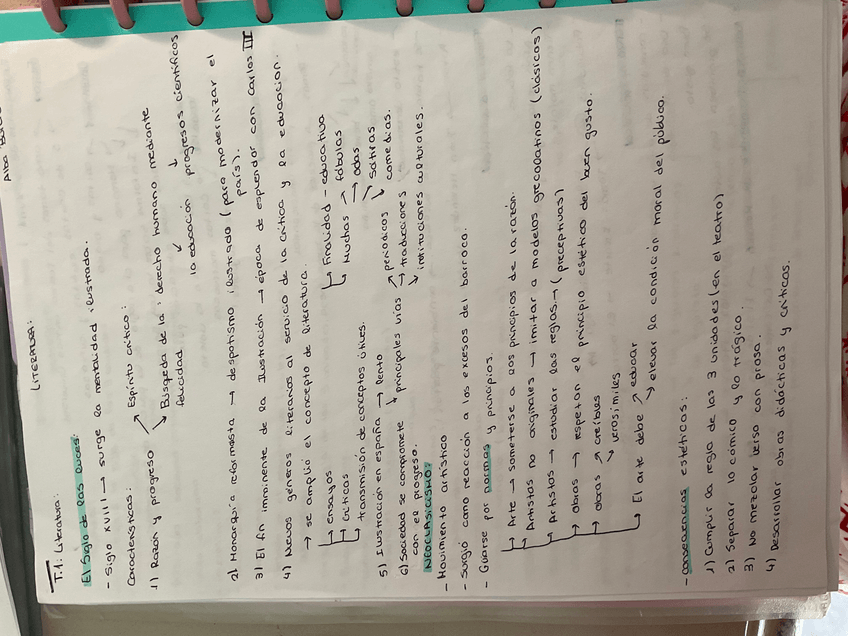 Alba
LITERATURA:
T.1. Literatura:
El Siglo de las luces.
- Siglo XVIII → surge la mentalidad ilustrada.
Características:
1) Razón y progreso → Espíritu crítico:
↘ Búsqueda de la derecho humano mediante
felicidad
la educación progresos científicos
2) Monarquía reformista → despotismo ilustrado (para modernizar el
país).
3) El fin imminente de la Ilustración → época de esplendor con Carlos III
4) Nuevos géneros literarios al servicio de la crítica y la educación.
→ se amplió el concepto de literatura.
→ ensayos
→ críticas
transmisión de conceptos útiles.
→ Finalidad - educativa
→ Muchas → fábulas
→ odas
→ sátiras
→ comedias.
5) Ilustración en españa → lento
6) Sociedad se compromete
con el progreso.
→ principales vías → periódicos
→ traducciones
→ instituciones culturales.
NEOCLASICISMO:
- Movimiento artístico
- Surgió como reacción a los excesos del barroco.
- Guiarse por normas y principios.
→ Arte → someterse a los principios de la razón.
→ Artistas no originales → imitar a modelos grecolatinos (clásicos)
→ Artistas → estudiar las reglas → (preceptivas)
→ obras → respetan el principio estético del buen gusto.
→ obras → creíbles
↘ verosímiles
→ El arte debe ↗ educar
↘ elevar la condición moral del público.
- consecuencias estéticas:
1) Cumplir la regla de las 3 unidades (en el teatro)
2) Separar lo cómico y lo trágico.
3) No mezclar verso con prosa.
4) Desarrollar obras didácticas y críticas.